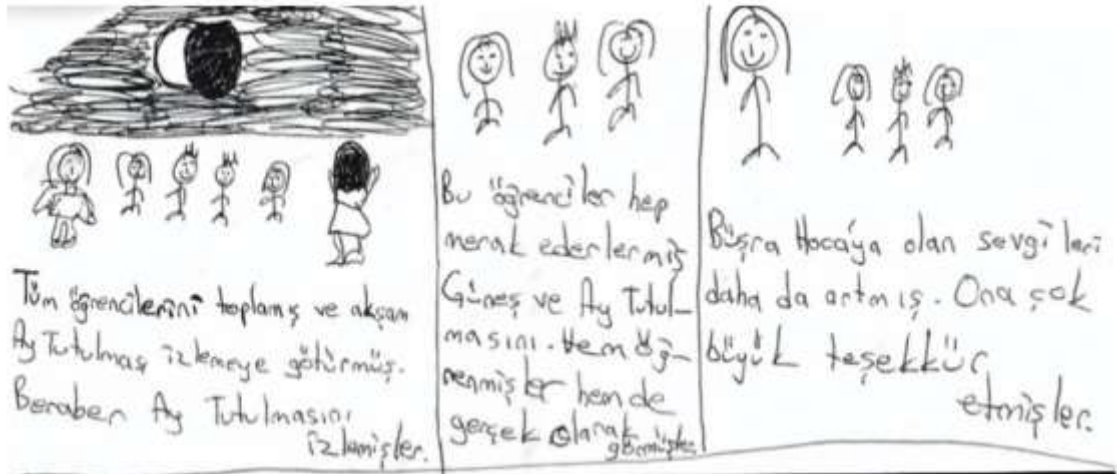 Tüm öğrencilerini toplamış ve akşam
Ay Tutulması izlemeye götürmüş.
Beraber Ay Tutulmasını
izlemişler.
Bu öğrenciler hep
merak ederlermiş
Güneş ve Ay Tutul-
masını. Hem öğ-
renmişler hemde
gerçek olarak
görmüşler.
Büşra Hoca'ya olan sevgileri
daha da artmış. Ona çok
büyük teşekkür
etmişler.